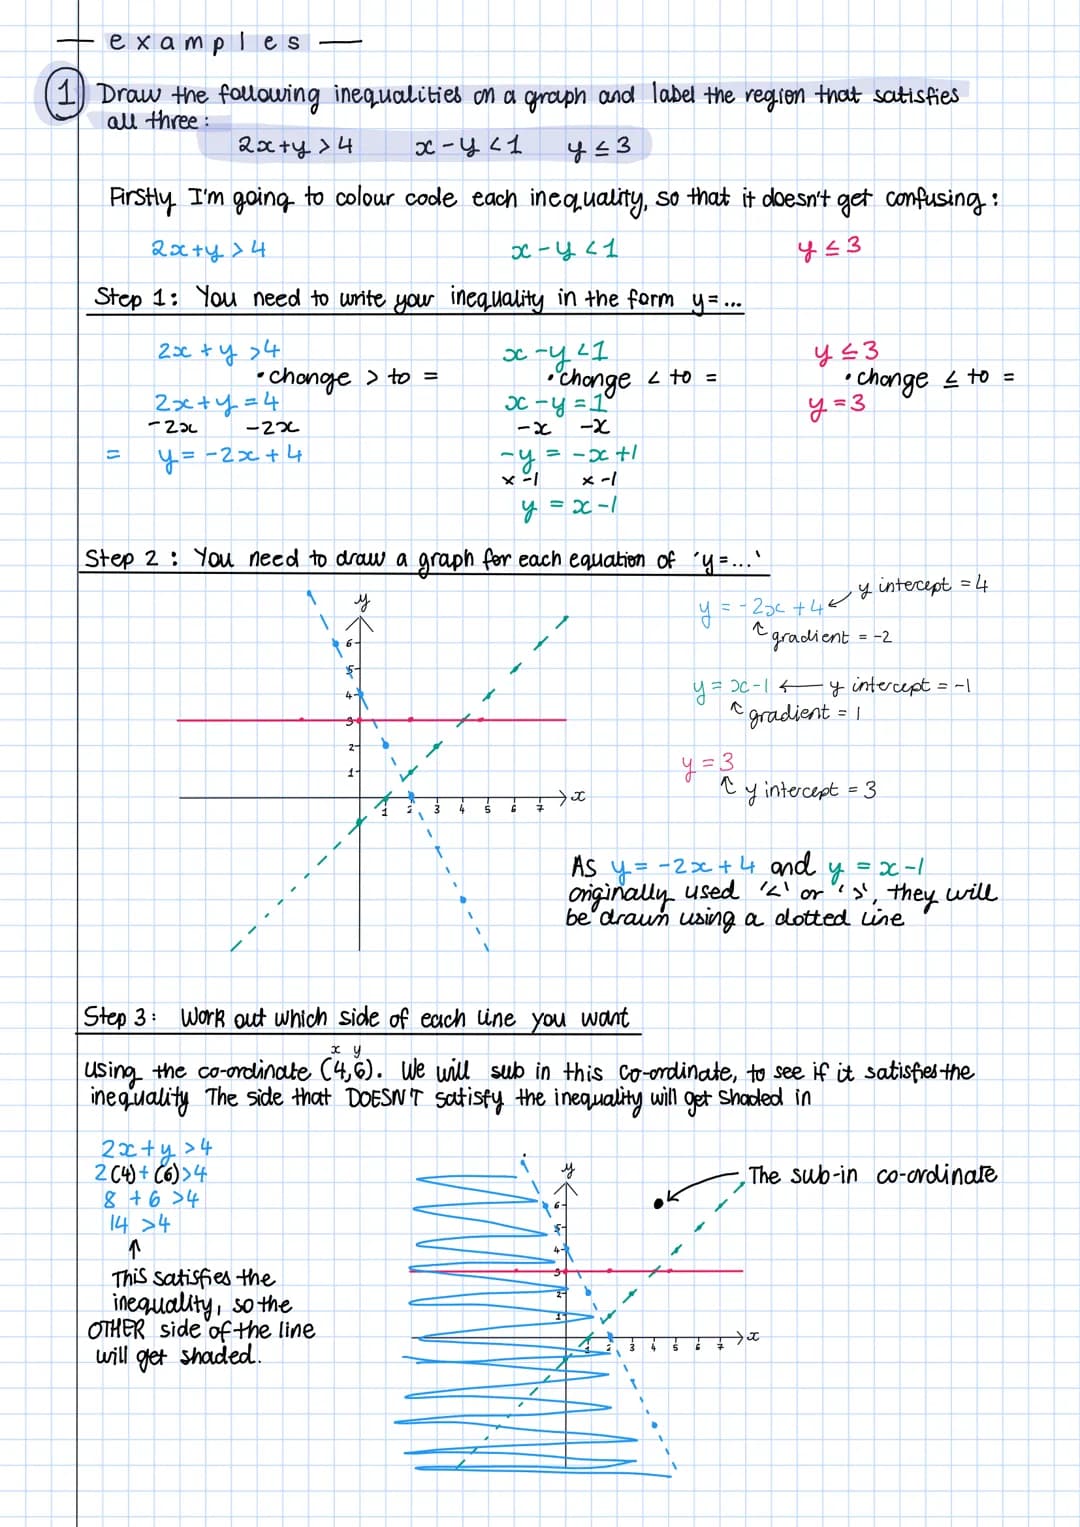 examples
1 Draw the following inequalities on a graph and label the region that satisfies
all three:
2x+y > 4    x-y < 1    y ≤ 3
Firstly I'm going to colour code each inequality, so that it doesn't get confusing:
2x+y > 4    x-y < 1    y ≤ 3
Step 1: You need to write your inequality in the form y=...
2x + y > 4    x-y < 1    y ≤ 3
• change > to =    • change < to =    • change ≤ to =
2x+y = 4    x-y = 1    y = 3
-2x    -2x    -x    -x
= y = -2x + 4    -y = -x +1
x -1    x -1
y = x - 1
Step 2: You need to draw a graph for each equation of 'y=...'
y
6
5
4
3
2
1
1 2 3 4 5 6 7 x
y intercept = 4
y = -2x + 4
gradient = -2
y = x-1 ← y intercept = -1
gradient = 1
y = 3
y intercept = 3
As y = -2x + 4 and y = x-1
originally used '<' or '>', they will
be drawn using a dotted line
Step 3: Work out which side of each line you want
x y
Using the co-ordinate (4,6). We will sub in this co-ordinate, to see if it satisfies the
inequality The side that DOESN'T satisfy the inequality will get shaded in
2x+y > 4
2(4)+(6)>4
8 + 6 >4
14 >4
This satisfies the
inequality, so the
OTHER side of the line
will get shaded.
y
The sub-in co-ordinate
6
5
4
3
2
1
1 2 3 4 5 6 7 x